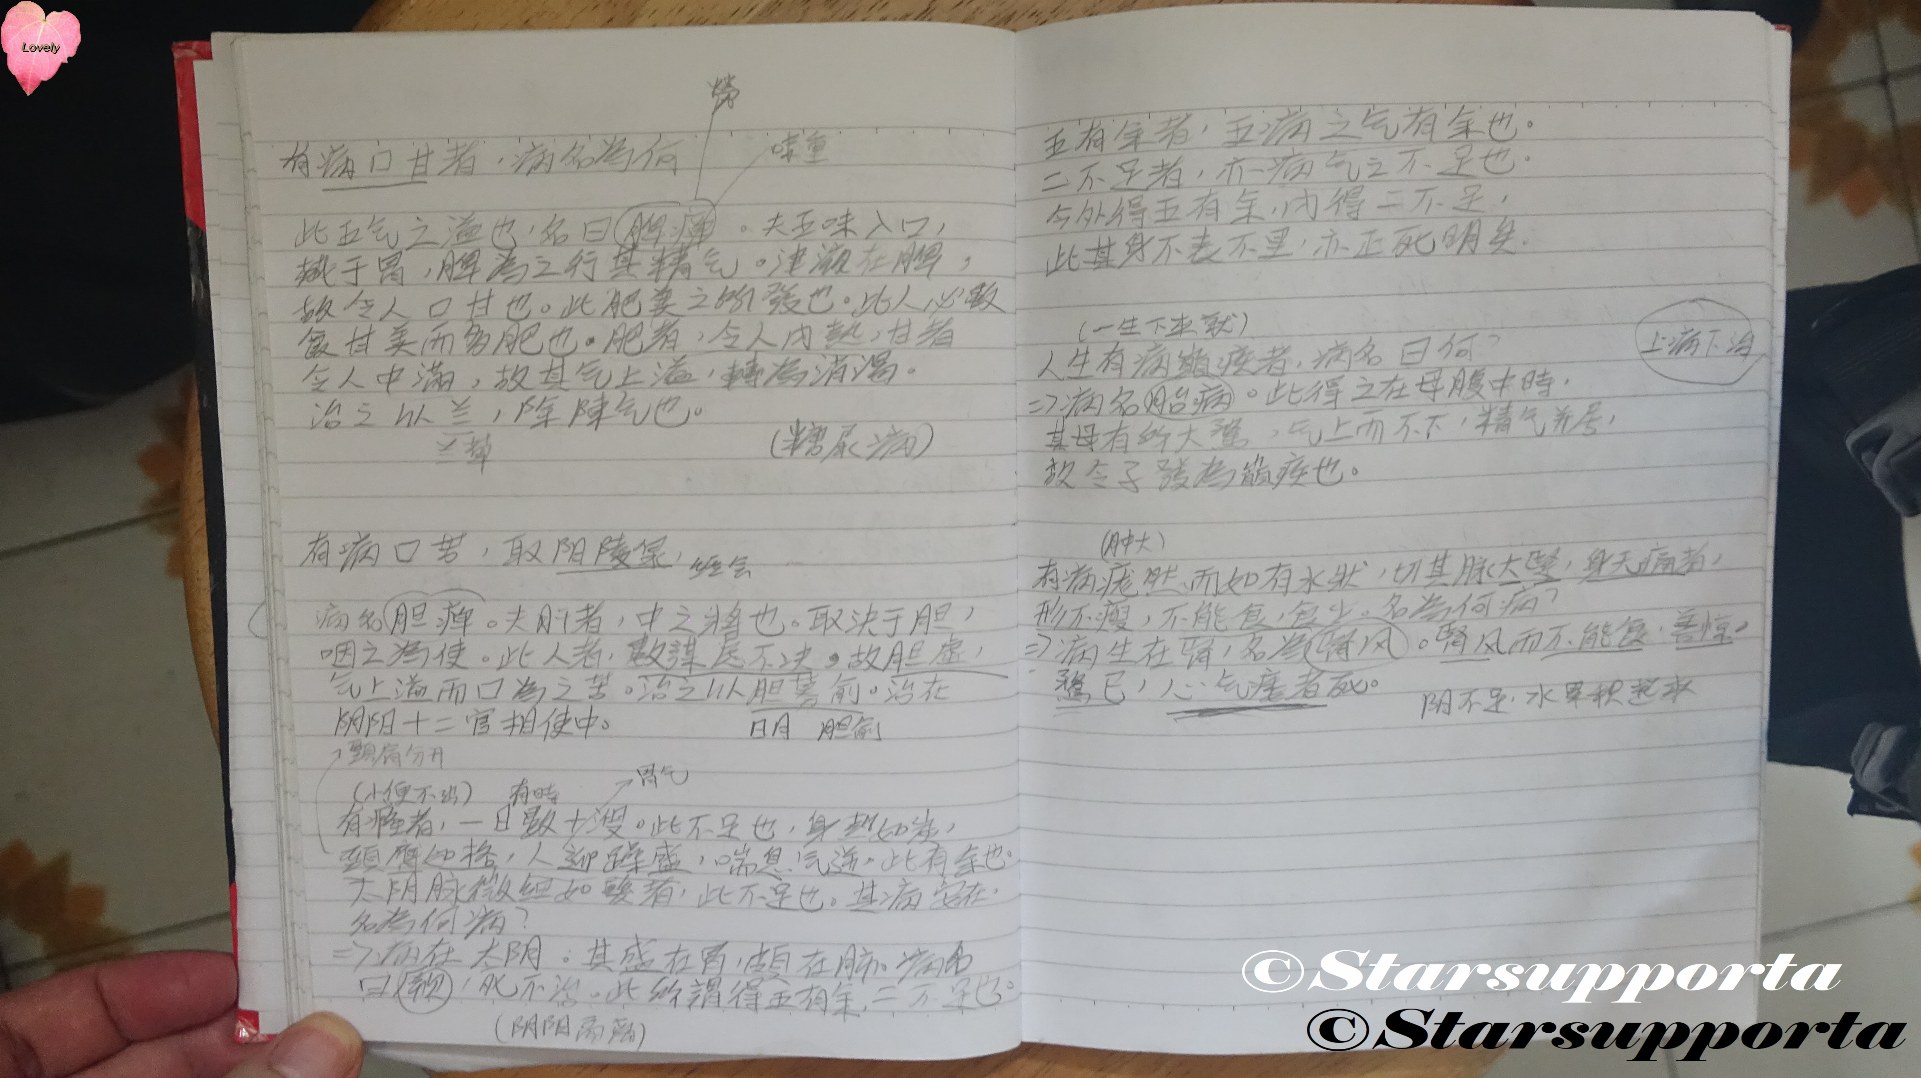 Lovely
勞
有病口甘者，病名為何
味重
此五气之溢也，名曰脾痺。夫五味入口，
藏于胃，脾為之行其精气。津液在脾，
故令人口甘也。此肥美之所發也。此人必數
食甘美而多肥也。肥者，令人内熱，甘者
令人中滿，故其气上溢，轉為消渴。
治之以兰，除陳气也。
兰草
(糖尿病)
有病口苦，取阳陵泉，
病名胆癉。夫肝者，中之將也。取決于胆，
咽之為使。此人者，數謀慮不決。故胆虛，
气上溢而口為之苦。治之以胆募俞。治在
阴阳十二官相使中。
日月 胆俞
(小便不出) 有時
胃气
有癃者，一日數十溲。此不足也，身熱如炭，
頸膺如格，人迎躁盛，喘息气逆。此有余也。
太阴脉微細如髮者，此不足也。其病安在，
名為何病？
=>病在太阴。其盛在胃，頗在肺。病名
曰厥，死不治。此所謂得五有余，二不足也。
(阴阳离)
五有余者，五病之气有余也。
二不足者，亦病气之不足也。
今外得五有余，内得二不足，
此其身不表不里，亦正死明矣。
(一生下來就)
上病下治
人生有病巔疾者，病名曰何？
=>病名胎病。此得之在母腹中時，
其母有所大驚，气上而不下，精气并居，
故令子發為巔疾也。
(肿大)
有病庞然而如有水狀，切其脉大緊，身无痛者，
形不瘦，不能食，食少。名為何病？
=>病生在腎，名為腎风。腎风而不能食，善惊，
驚已，心气痿者死。
阴不足，水累积起來
©Starsupporta
©Starsupporta